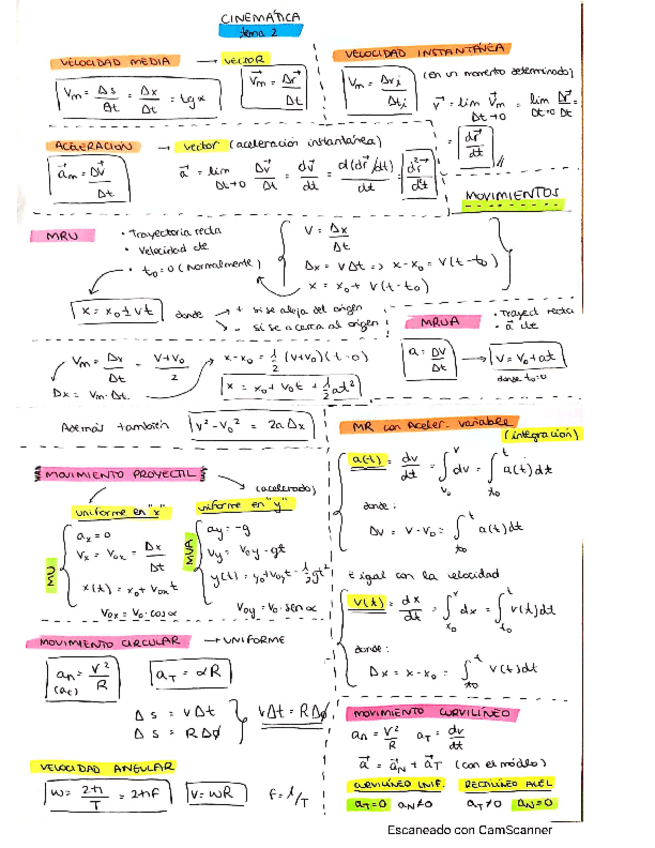 CINEMÁTICA
tema 2
VELOCIDAD MEDIA → VECTOR
Vm = Δs/Δt = Δx/Δt = tgα
V⃗m = Δr⃗/Δt
VELOCIDAD INSTANTÁNEA
Vm = Δri/Δti
(en un momento determinado)
v⃗ = lim Δt→0 V⃗m = lim Δt→0 Δr⃗/Δt =
= dr⃗/dt
ACELERACION → vector (aceleración instantánea)
a⃗m = ΔV⃗/Δt
a⃗ = lim Δt→0 ΔV⃗/Δt = dv⃗/dt = d(dr⃗/dt)/dt = d²r⃗/dt
MOVIMIENTOS
MRU
• Trayectoria recta
• Velocidad cte
• t₀=0 (Normalmente)
V = Δx/Δt
Δx = vΔt => x-x₀ = v(t-t₀)
x = x₀ + v(t-t₀)
x = x₀ ± vt
donde → + si se aleja del origen
→ - si se acerca al origen
MRUA
• Trayect recta
• a⃗ cte
a = ΔV/Δt → V = V₀ + at
donde t₀=0
Vm = Δx/Δt = V+V₀/2
Δx = Vm·Δt
x-x₀ = 1/2 (V+V₀)(t-0)
x = x₀ + V₀t + 1/2at²
Además también V²-V₀² = 2aΔx
MR con Aceler. variable
(integración)
a(t) = dv/dt = ∫ᵥ₀ᵛ dv = ∫ₜ₀ᵗ a(t)dt
donde:
Δv = v-v₀ = ∫ₜ₀ᵗ a(t)dt
Igual con la velocidad
V(t) = dx/dt = ∫ₓ₀ˣ dx = ∫ₜ₀ᵗ v(t)dt
donde:
Δx = x-x₀ = ∫ₜ₀ᵗ v(t)dt
MOVIMIENTO PROYECTIL
(acelerado)
uniforme en "x"
uniforme en "y"
MU
ax = 0
Vx = Vox = Δx/Δt
x(t) = x₀ + Voxt
Vox = V₀·cosα
MUA
ay = -g
Vy = Voy - gt
y(t) = y₀ + Voyt - 1/2gt²
Voy = V₀·senα
MOVIMIENTO CIRCULAR → UNIFORME
an = V²/R
(ac)
aT = αR
Δs = vΔt
Δs = RΔϕ
vΔt = RΔϕ
VELOCIDAD ANGULAR
ω = 2π/T = 2πf
V = ωR
f = 1/T
MOVIMIENTO CURVILÍNEO
an = V²/R aT = dv/dt
a⃗ = a⃗N + a⃗T (con el módulo)
CURVILÍNEO UNIF. RECTILÍNEO ACEL
aT=0 aN≠0 aT≠0 aN=0
Escaneado con CamScanner